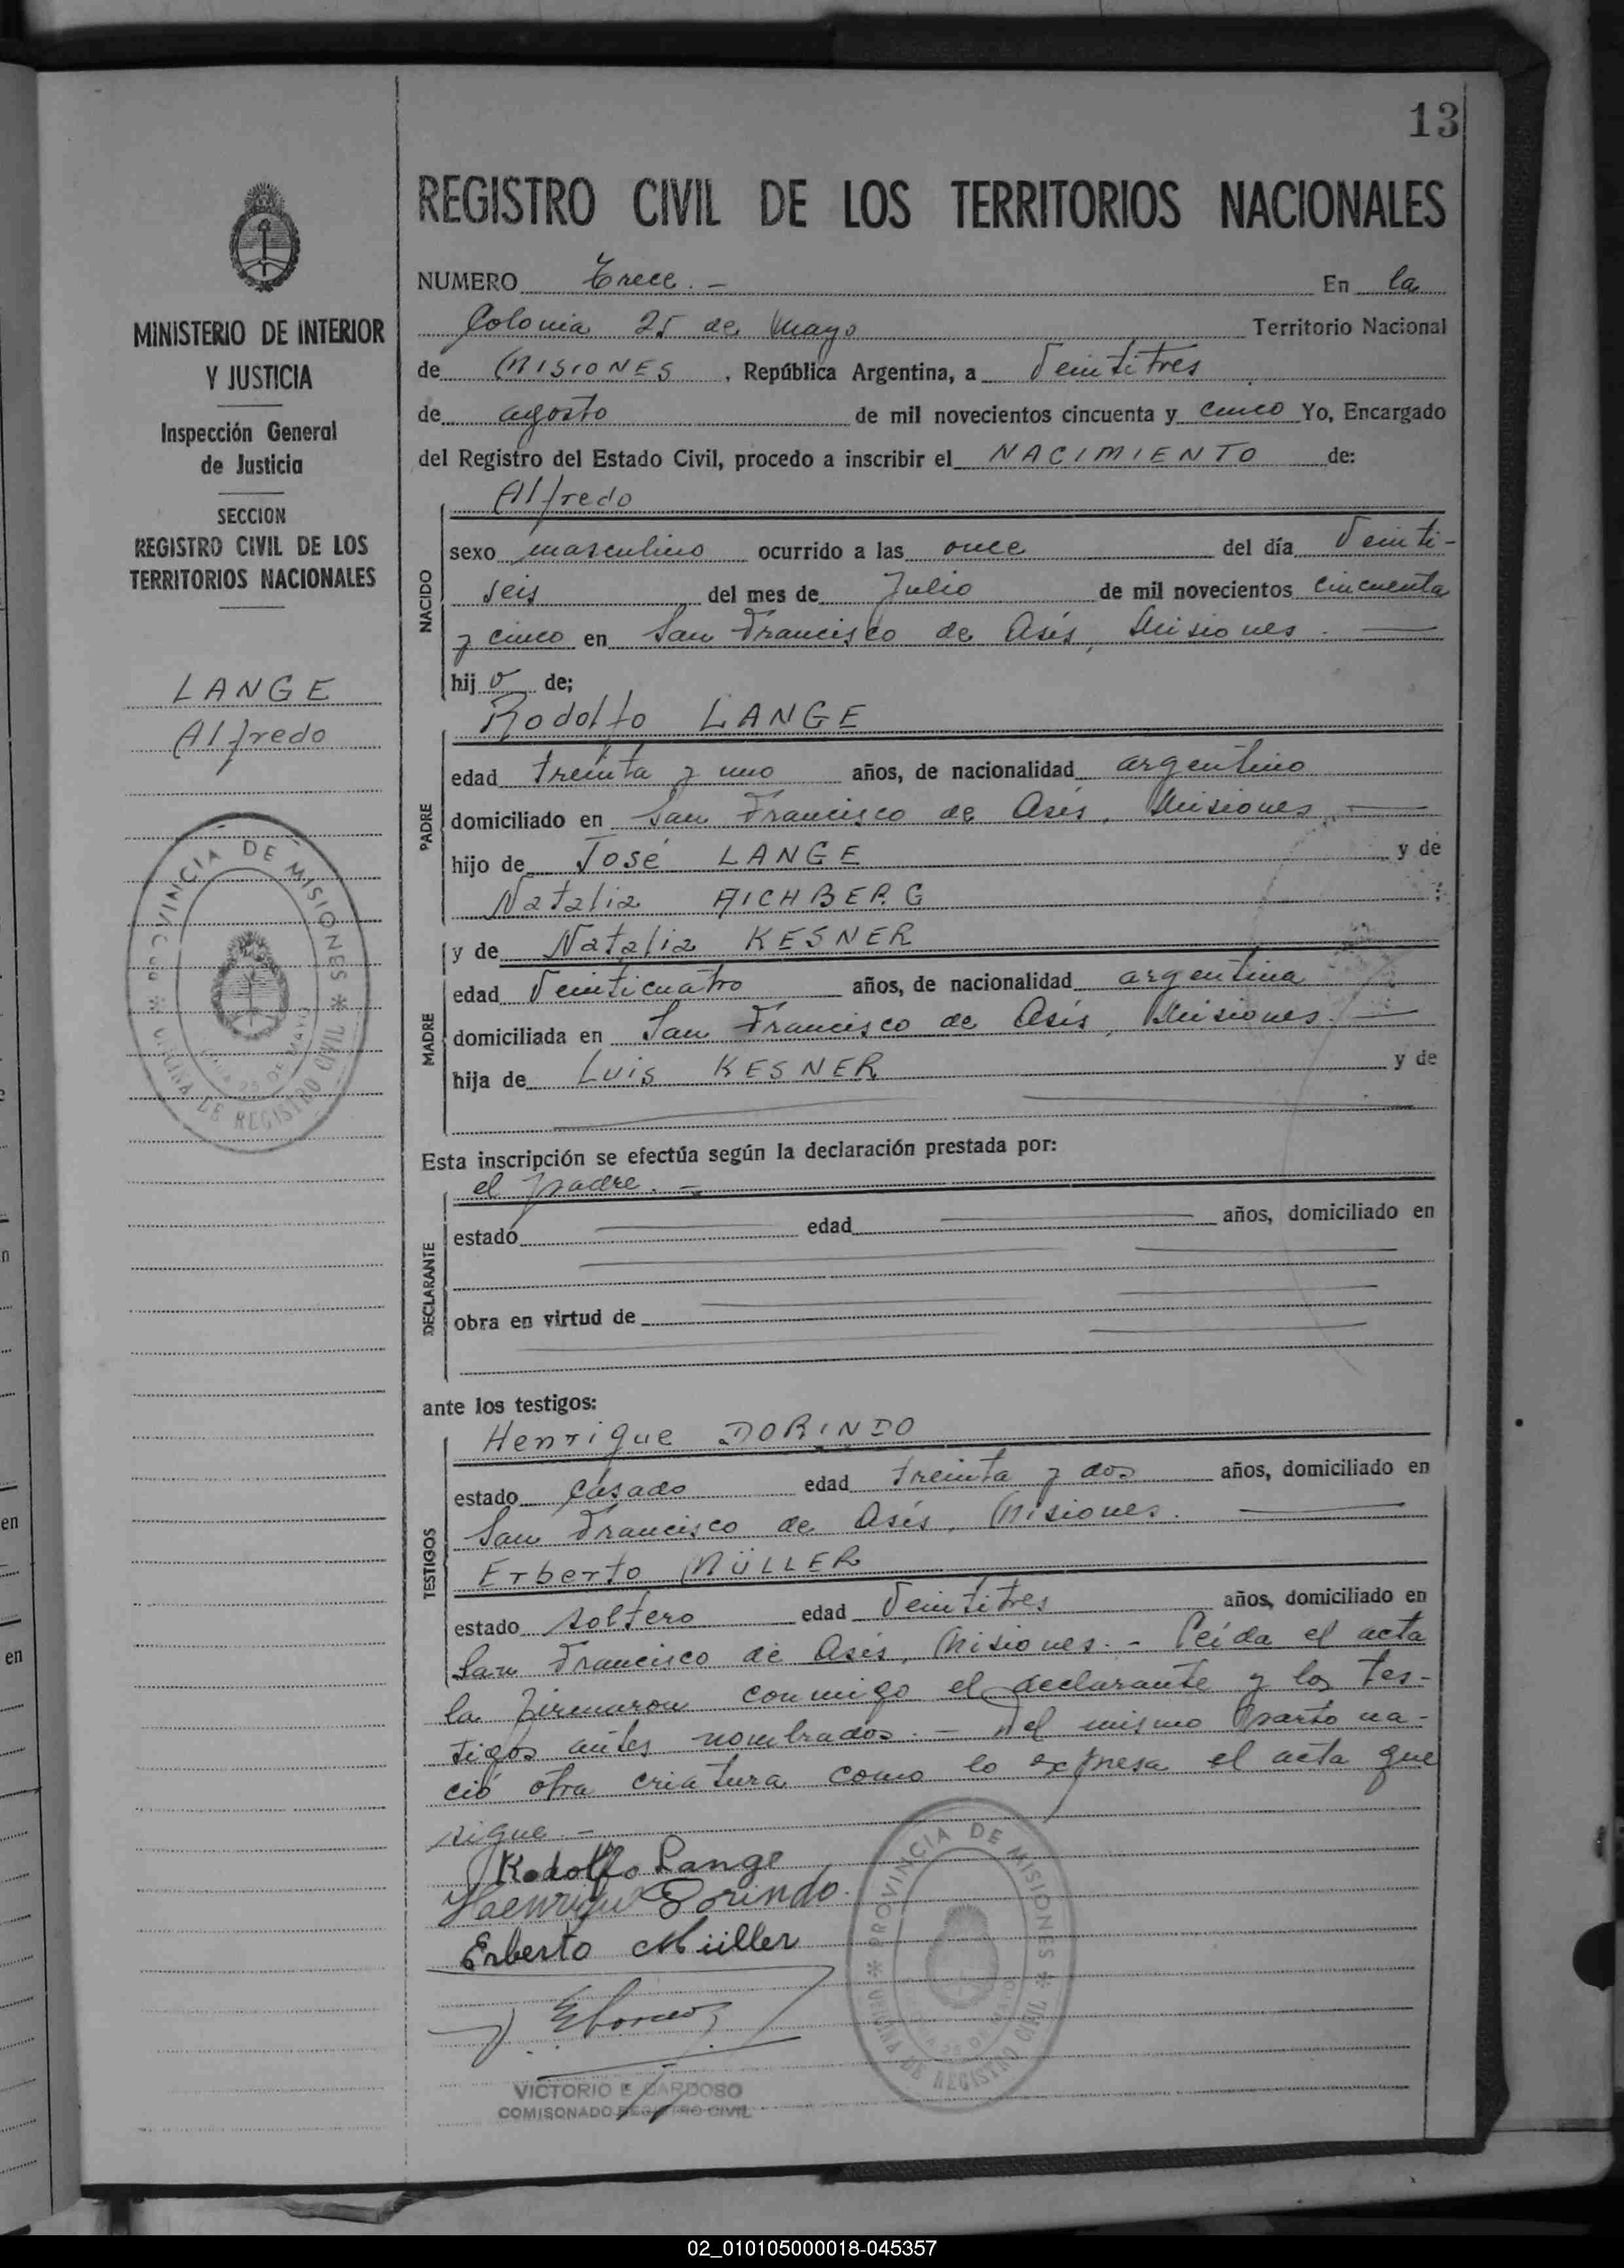 13
REGISTRO CIVIL DE LOS TERRITORIOS NACIONALES
MINISTERIO DE INTERIOR
Y JUSTICIA
Inspección General
de Justicia
SECCION
REGISTRO CIVIL DE LOS
TERRITORIOS NACIONALES
LANGE
Alfredo
PROVINCIA DE MISIONES
OFICINA DE REGISTRO CIVIL
25 DE MAYO
NUMERO Trece.- En la
Colonia 25 de Mayo Territorio Nacional
de MISIONES, República Argentina, a Veintitres
de agosto de mil novecientos cincuenta y cinco Yo, Encargado
del Registro del Estado Civil, procedo a inscribir el NACIMIENTO de:
Alfredo
NACIDO
sexo masculino ocurrido a las once del día Veinti-
seis del mes de Julio de mil novecientos cincuenta
y cinco en San Francisco de Asís, Misiones.
hijo de;
Rodolfo LANGE
PADRE
edad treinta y uno años, de nacionalidad argentino
domiciliado en San Francisco de Asís, Misiones.
hijo de José LANGE y de
Natalia AICHBERG :
y de Natalia KESNER
MADRE
edad Veinticuatro años, de nacionalidad argentina
domiciliada en San Francisco de Asís, Misiones.
hija de Luis KESNER y de
Esta inscripción se efectúa según la declaración prestada por:
el padre.-
DECLARANTE
estado edad años, domiciliado en
obra en virtud de
ante los testigos:
TESTIGOS
Henrique DORINDO
estado Casado edad treinta y dos años, domiciliado en
San Francisco de Asís, Misiones.
Erberto MÜLLER
estado soltero edad Veintitres años, domiciliado en
San Francisco de Asís, Misiones.- Leída el acta
la firmaron conmigo el declarante y los tes-
tigos antes nombrados.- Del mismo parto na-
ció otra criatura como lo expresa el acta que
sigue.-
Rodolfo Lange
Haenrique Dorindo.
Erberto Müller
VICTORIO E CARDOSO
COMISONADO REGISTRO CIVIL
PROVINCIA DE MISIONES
OFICINA DE REGISTRO CIVIL
02_010105000018-045357